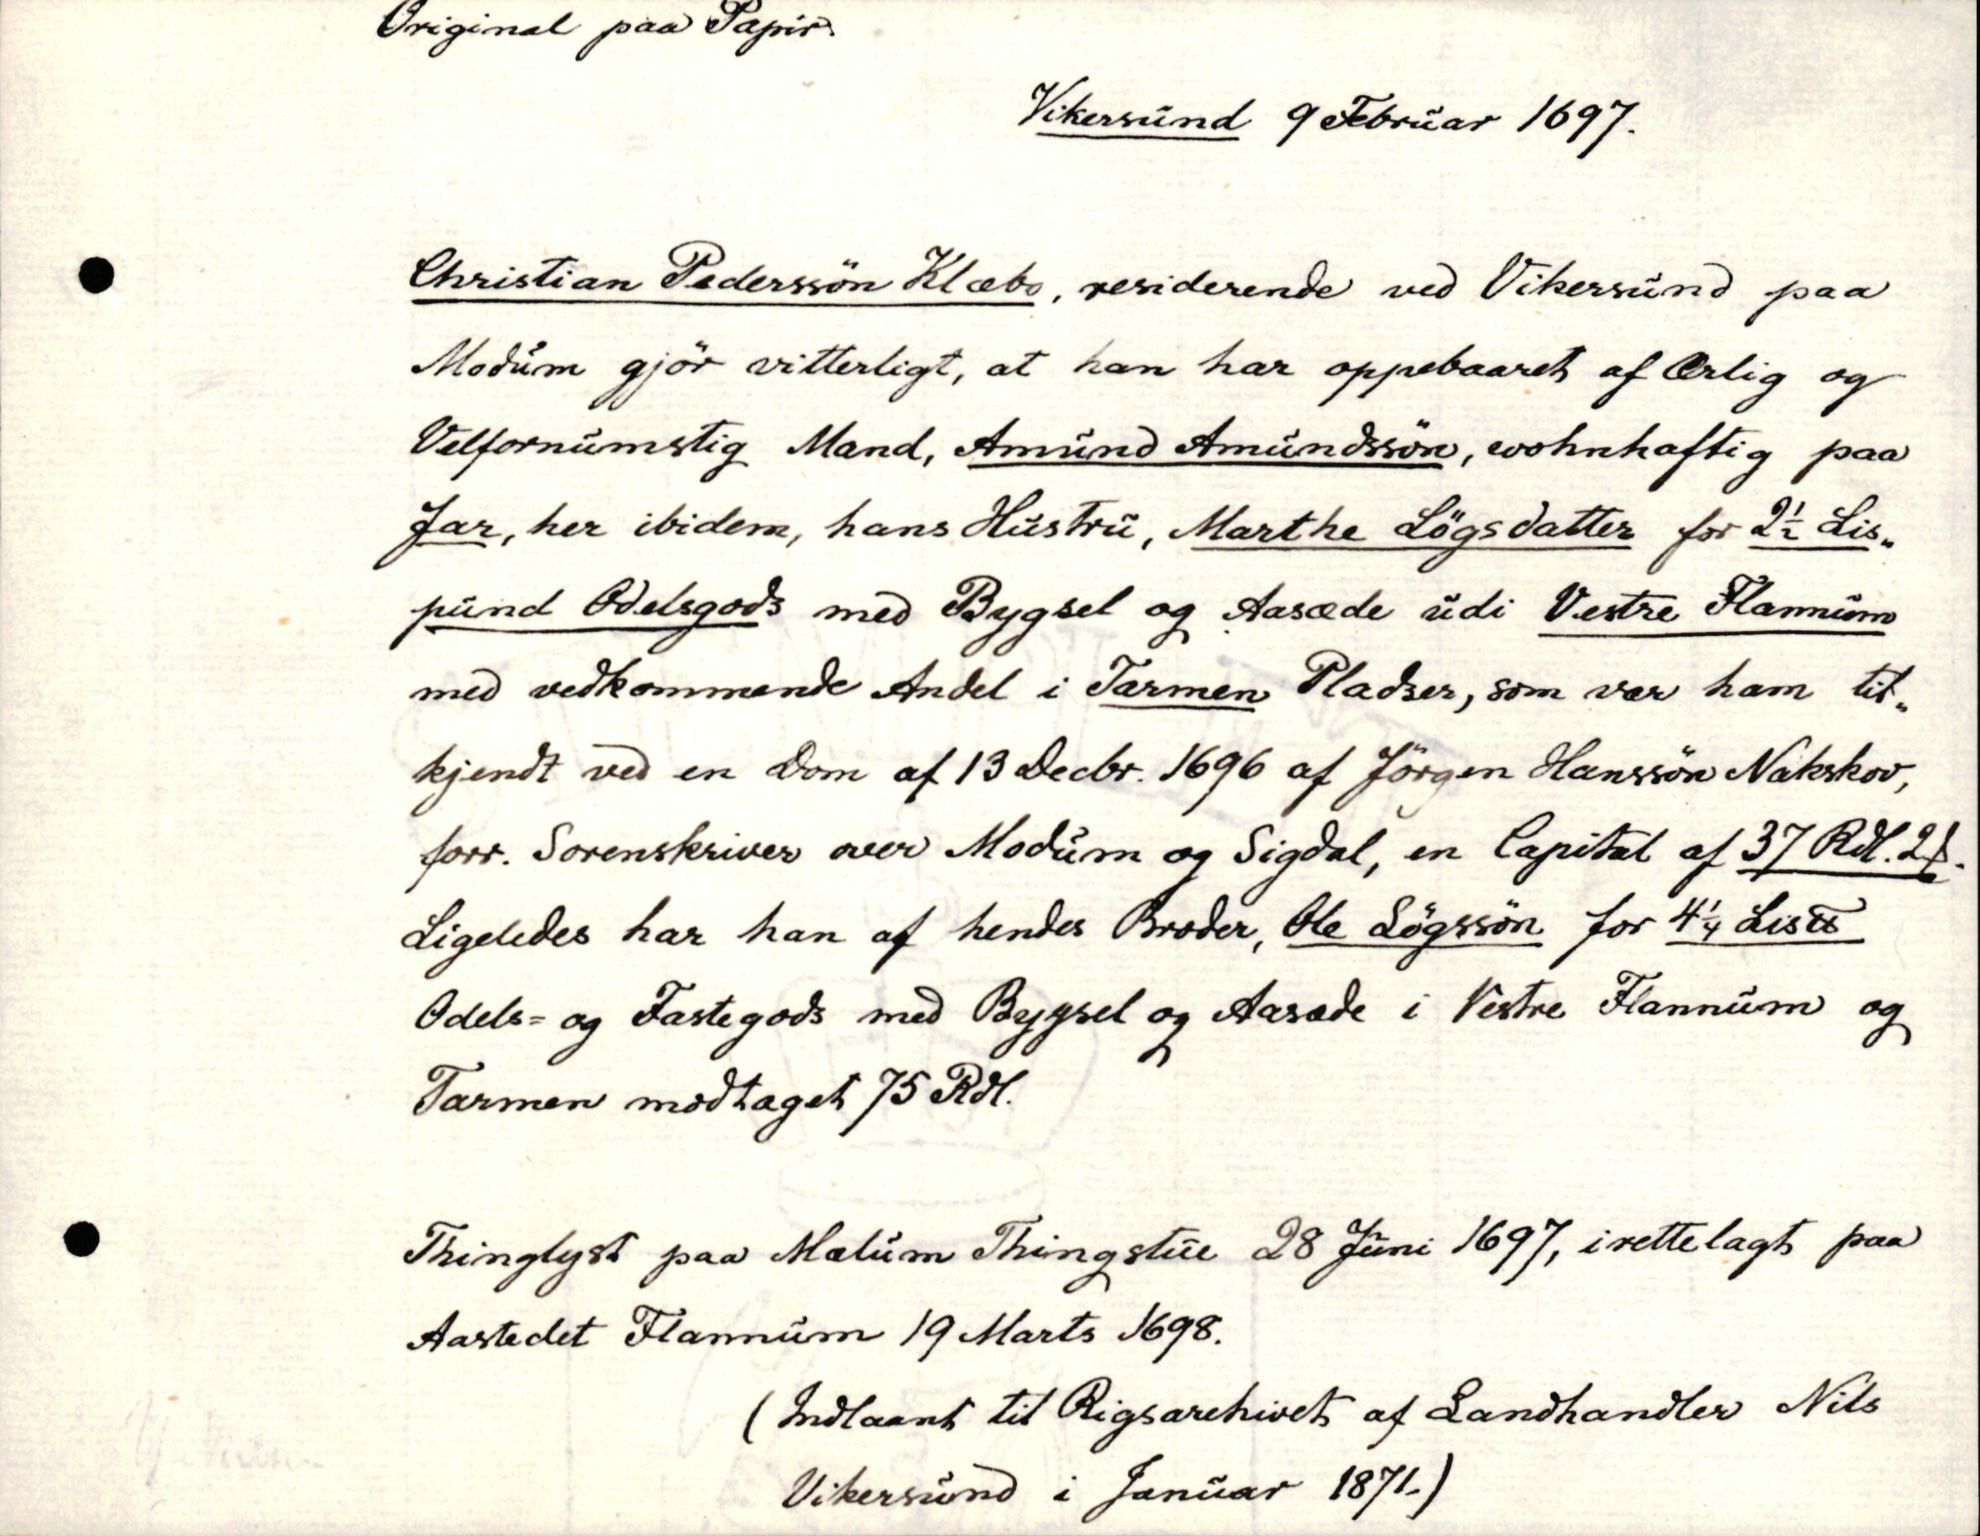 Original paa Papir.
Vikersund 9 Februar 1697.
Christian Pederssön Klæbo, residerende ved Vikersund paa
Modum gjör vitterligt, at han har oppebaaret af Ærlig og
Velfornumstig Mand, Amund Amundssön, wohnhaftig paa
Jar, her ibidem, hans Hustru, Marthe Lögsdatter for 2½ Lis-
pund Odelsgods med Bygsel og Aasæde udi Vestre Flannum
med vedkommende Andel i Tarmen Pladser, som var ham til-
kjendt ved en Dom af 13 Decbr. 1696 af Jörgen Hanssön Nakskov,
forr. Sorenskriver over Modum og Sigdal, en Capital af 37 Rdl. 2
Ligeledes har han af hendes Broder, Ole Lögssön for 4¼ Lis℔
Odels= og Fastegods med Bygsel og Aasæde i Vestre Flannum og
Tarmen modtaget 75 Rdl.
Thinglyst paa Mælum Thingstue 28 Juni 1697, irettelagt paa
Aastedet Flannum 19 Marts 1698.
(Indlaant til Rigsarchivet af Landhandler Nils
Vikersund i Januar 1871.)